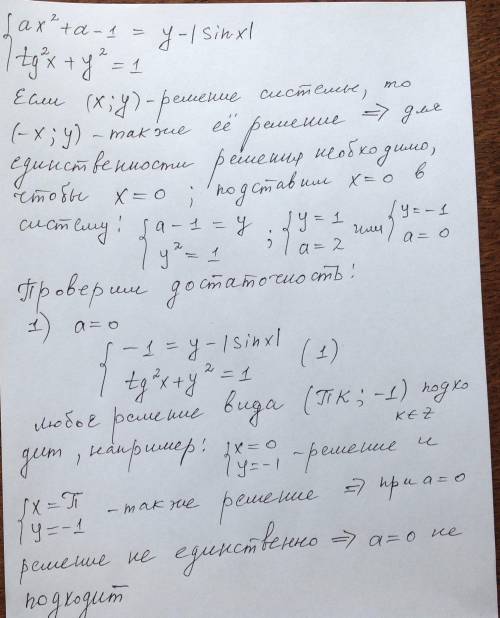 { ax² + a - 1 = y - |sin x|
{ tg²x + y² = 1
Если (x; y) - решение системы, то
(-x; y) - также её решение ⇒ для
единственности решения необходимо,
чтобы x = 0 ; подставим x = 0 в
систему: { a - 1 = y ; { y = 1 или { y = -1
{ y² = 1 { a = 2 { a = 0
Проверим достаточность:
1) a = 0
{ -1 = y - |sin x|
{ tg²x + y² = 1 (1)
любое решение вида (πк; -1) подхо
к ∈ Z
дит, например: { x = 0
{ y = -1 - решение и
{ x = π
{ y = -1 - также решение ⇒ при a = 0
решение не единственно ⇒ a = 0 не
подходит